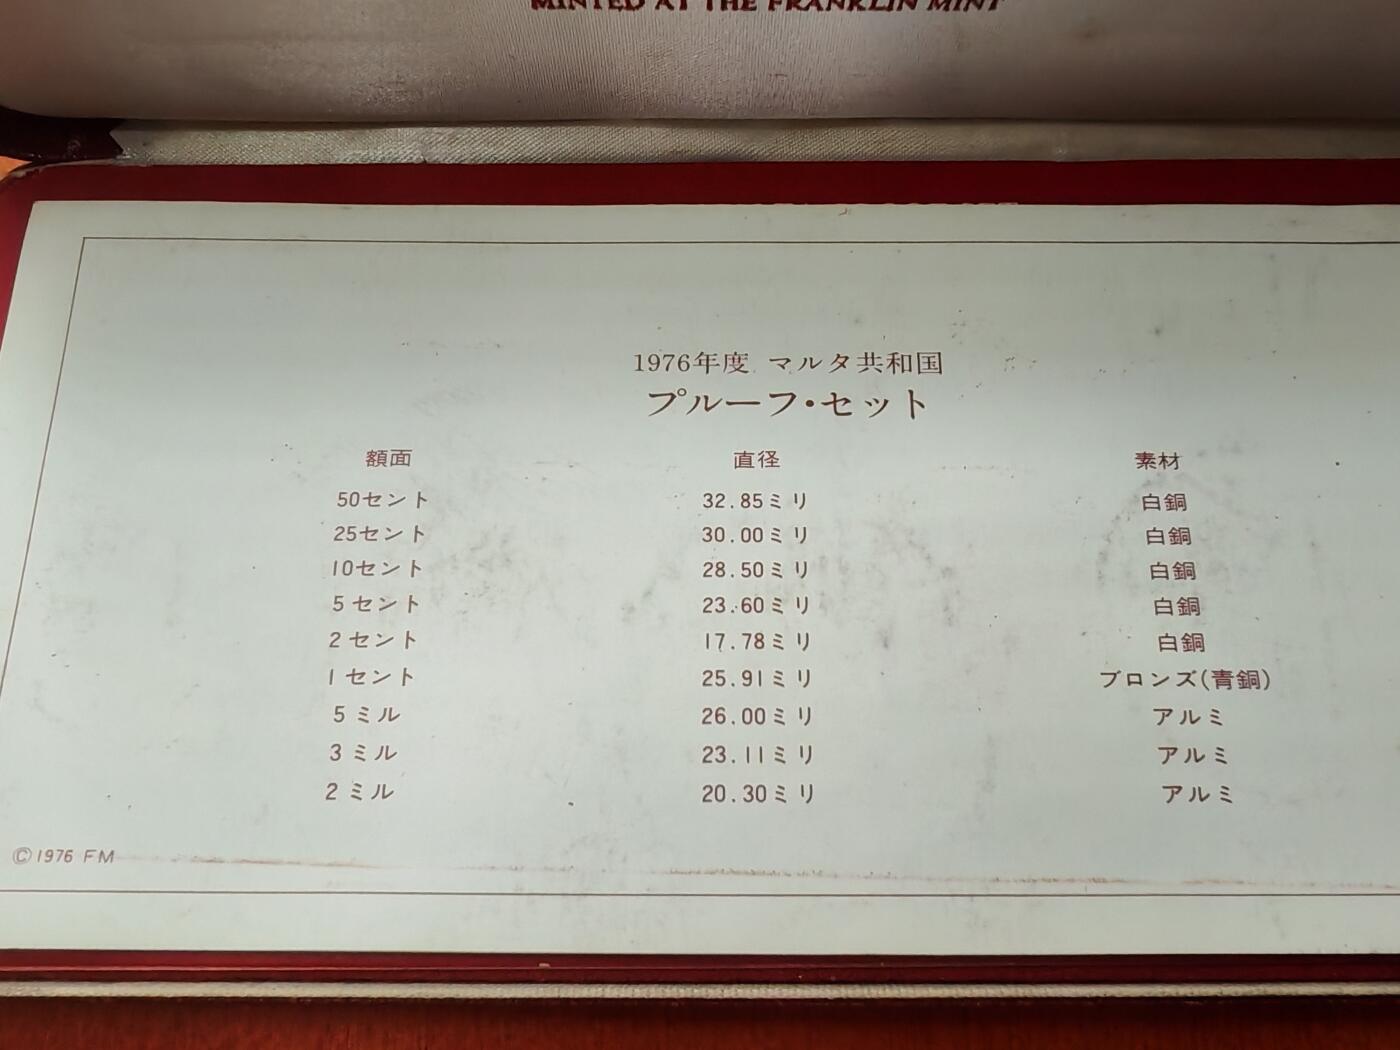 MINTED AT THE FRANKLIN MINT
1976年度 マルタ共和国
プルーフ・セット
額面 直径 素材
50セント 32.85ミリ 白銅
25セント 30.00ミリ 白銅
10セント 28.50ミリ 白銅
5セント 23.60ミリ 白銅
2セント 17.78ミリ 白銅
1セント 25.91ミリ ブロンズ(青銅)
5ミル 26.00ミリ アルミ
3ミル 23.11ミリ アルミ
2ミル 20.30ミリ アルミ
©1976 FM